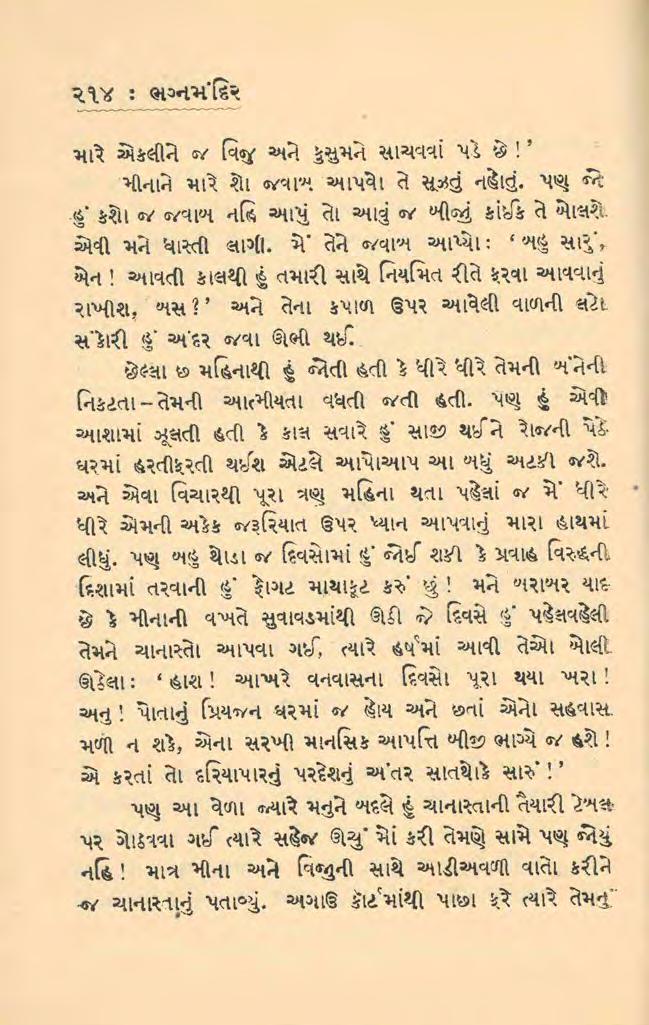 ૨૧૪ : ભગ્નમંદિર
મારે એકલીને જ વિજુ અને કુસુમને સાચવવાં પડે છે !’
મીનાને મારે શો જવાબ આપવો તે સૂઝતું નહોતું. પણ જો
હું કશો જ જવાબ નહિ આપું તો આવું જ બીજું કાંઈક તે બોલશે
એવી મને ધાસ્તી લાગી. મેં તેને જવાબ આપ્યો : ‘બહુ સારું,
બેન ! આવતી કાલથી હું તમારી સાથે નિયમિત રીતે ફરવા આવવાનું
રાખીશ, બસ ?’ અને તેના કપાળ ઉપર આવેલી વાળની લટો
સંકોરી હું અંદર જવા ઊભી થઈ.
છેલ્લા છ મહિનાથી હું જોતી હતી કે ધીરે ધીરે તેમની બંનેની
નિકટતા – તેમની આત્મીયતા વધતી જતી હતી. પણ હું એવી
આશામાં ઝૂલતી હતી કે કાલ સવારે હું સાજી થઈને રોજની પેઠે
ઘરમાં હરતીફરતી થઈશ એટલે આપોઆપ આ બધું અટકી જશે.
અને એવા વિચારથી પૂરા ત્રણ મહિના થતા પહેલાં જ મેં ધીરે
ધીરે એમની અકેક જરૂરિયાત ઉપર ધ્યાન આપવાનું મારા હાથમાં
લીધું. પણ બહુ થોડા જ દિવસોમાં હું જોઈ શકી કે પ્રવાહ વિરુદ્ધની
દિશામાં તરવાની હું ફોગટ માથાકૂટ કરું છું ! મને બરાબર યાદ
છે કે મીનાની વખતે સુવાવડમાંથી ઊઠી જે દિવસે હું પહેલવહેલી
તેમને ચાનાસ્તો આપવા ગઈ, ત્યારે હર્ષમાં આવી તેઓ બોલી
ઊઠેલા : ‘હાશ ! આખરે વનવાસના દિવસો પૂરા થયા ખરા !
અનુ ! પોતાનું પ્રિયજન ઘરમાં જ હોય અને છતાં એનો સહવાસ
મળી ન શકે, એના સરખી માનસિક આપત્તિ બીજી ભાગ્યે જ હશે !
એ કરતાં તો દરિયાપારનું પરદેશનું અંતર સાતથોકે સારું !’
પણ આ વેળા જ્યારે મનુને બદલે હું ચાનાસ્તાની તૈયારી ટેબલ
પર ગોઠવવા ગઈ ત્યારે સહેજ ઊચું મોં કરી તેમણે સામે પણ જોયું
નહિ ! માત્ર મીના અને વિજુની સાથે આડીઅવળી વાતો કરીને
જ ચાનાસ્તાનું પતાવ્યું. અગાઉ કૉર્ટમાંથી પાછા ફરે ત્યારે તેમનું